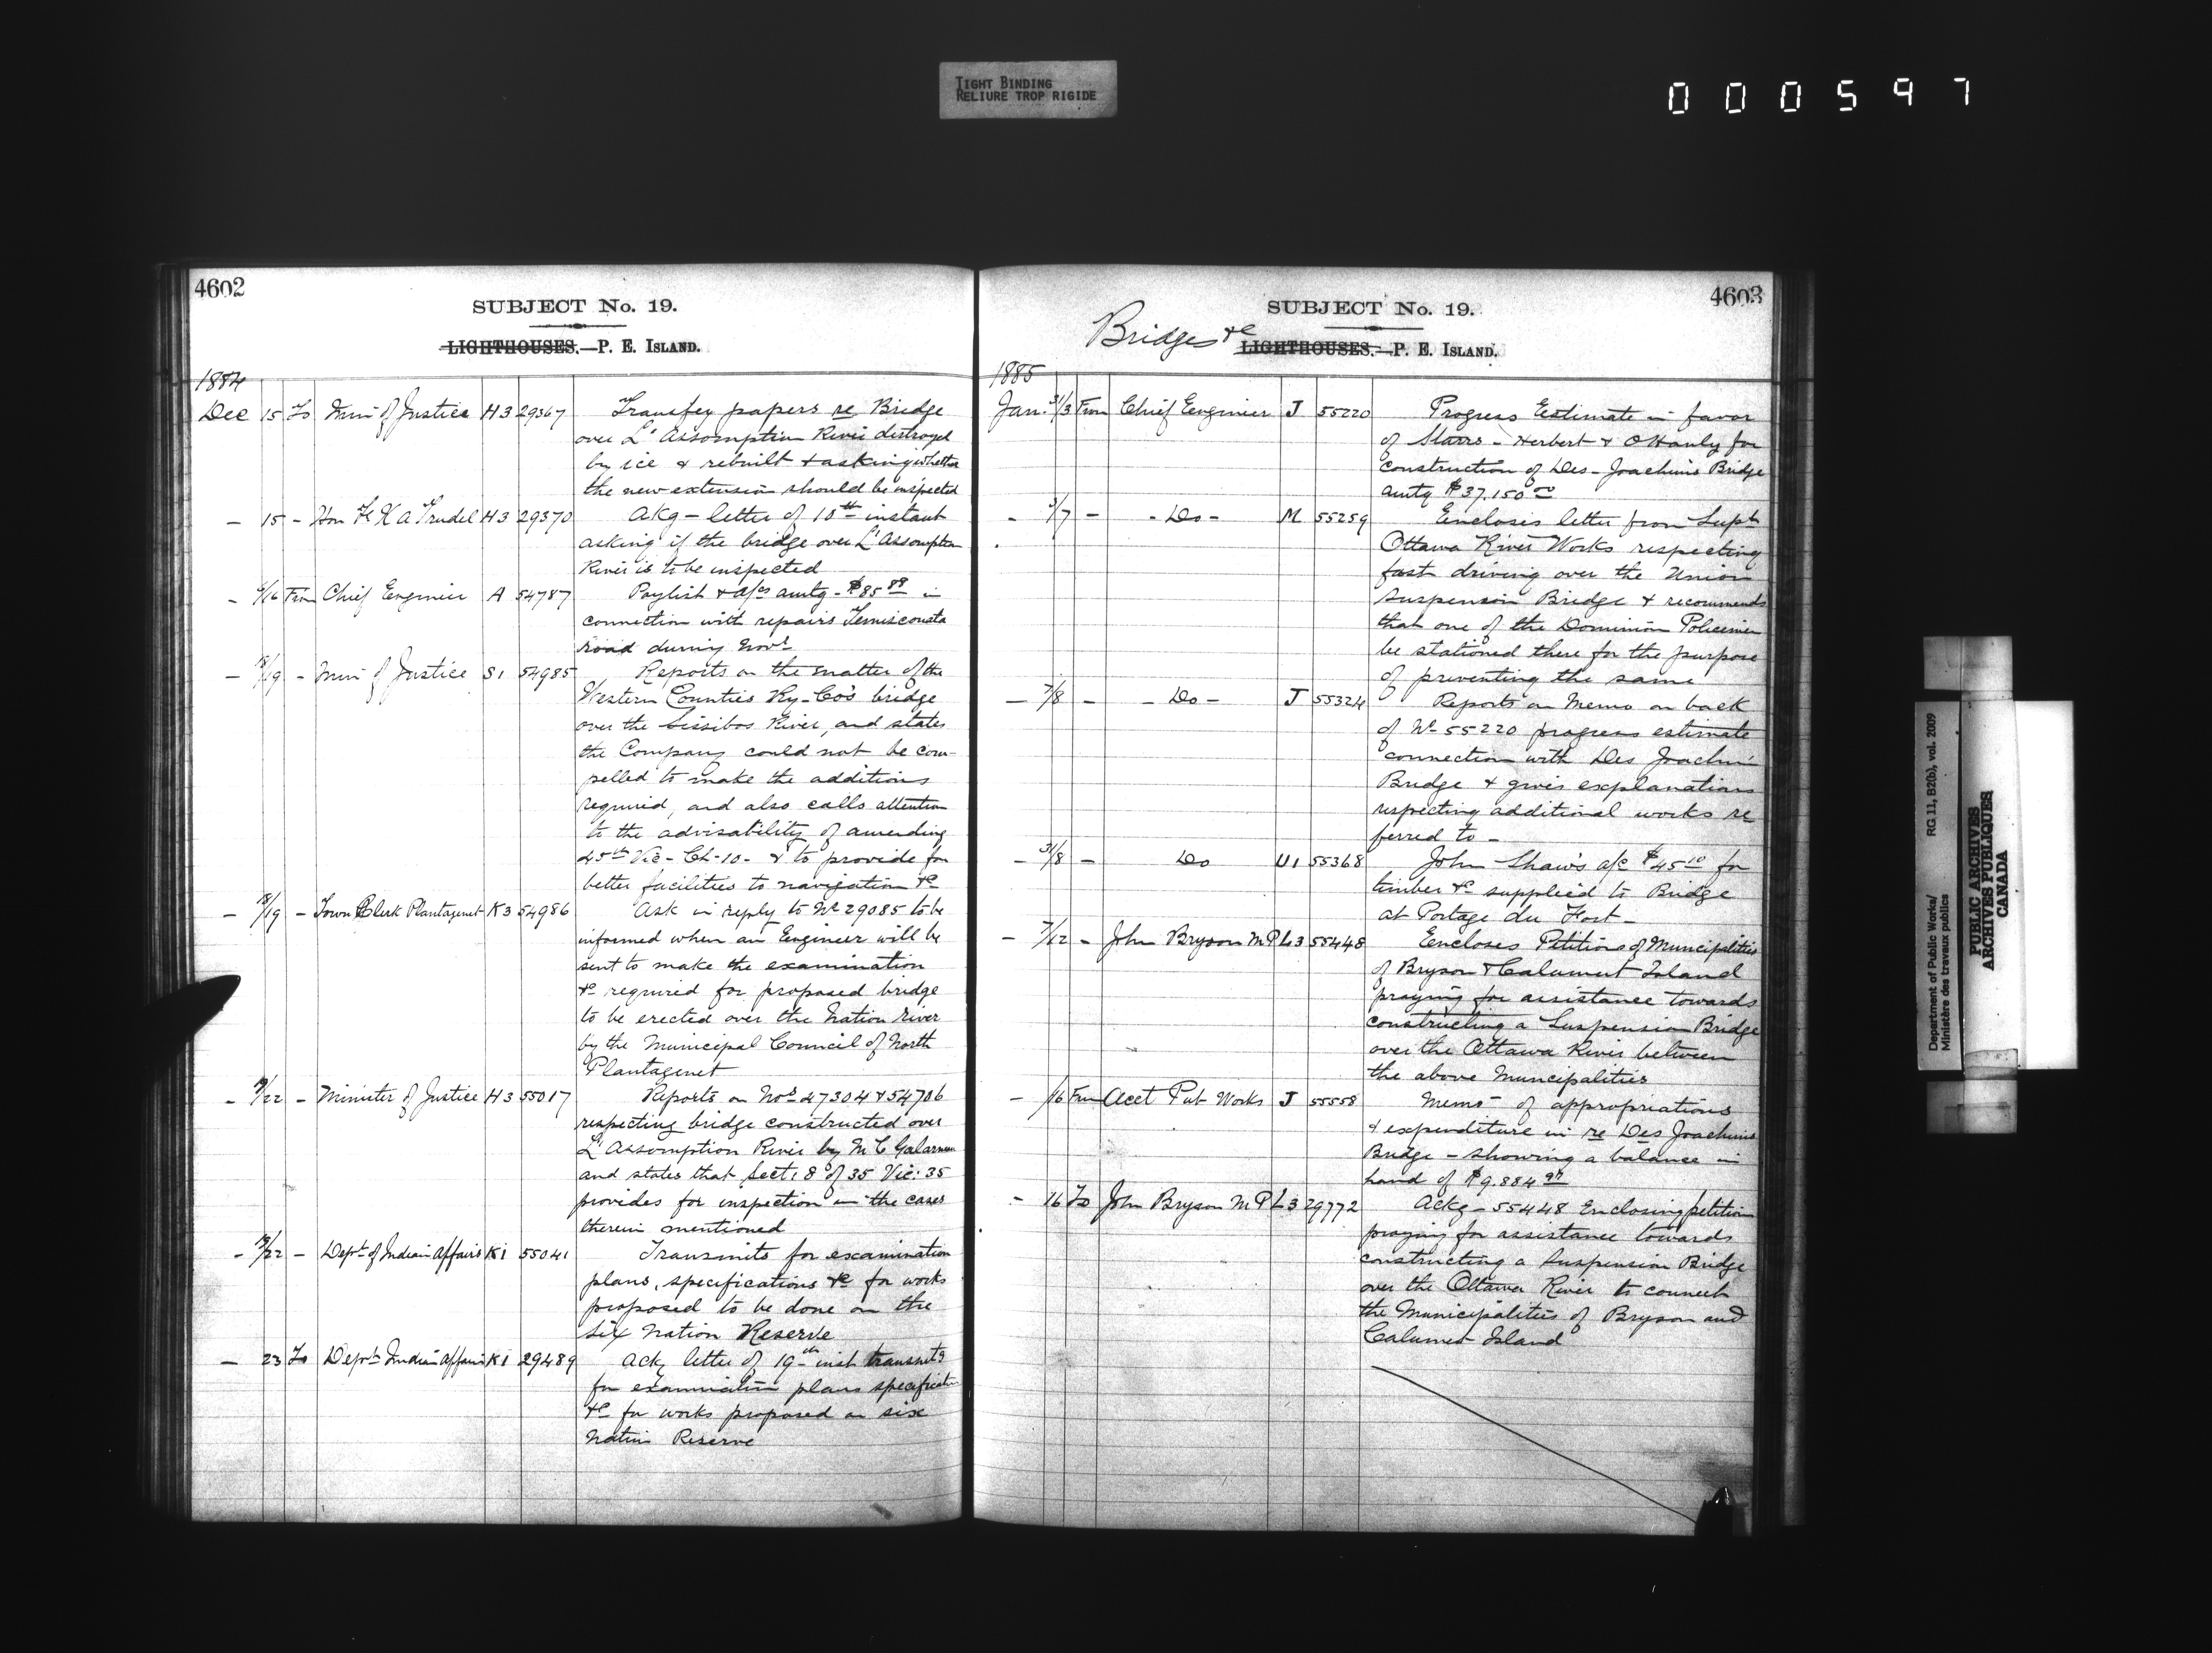 TIGHT BINDING
RELIURE TROP RIGIDE
000597
4602
SUBJECT No. 19.
LIGHTHOUSES.—P. E. ISLAND.
1884
Dec 15 To Min of Justice H3 29367 Transfer papers re Bridge
over L'Assomption River distroyed
by ice & rebuilt & asking whether
the new extension should be inspected
— 15 - Hon F X A Trudel H3 29370 Akg - letter of 10th instant
asking if the bridge over L'Assomption
River is to be inspected
- /16 From Chief Engineer A 54787 Paylist & a/cs amtg - $85 88 in
connection with repairs Temisconata
road during Novr
- 18/19 - Min of Justice S1 54985 Reports on the matter of the
Western Counties Ry-Co's bridge
over the Sissibos River, and states
the Company could not be com-
pelled to make the additions
required, and also calls attention
to the advisability of amending
45th Vic - Ch-10- & to provide for
better facilities to navigation &c
- 18/19 - Town Clerk Plantagenet K3 54986 Ask in reply to No 29085 to be
informed when an Engineer will be
sent to make the examination
&c required for proposed bridge
to be erected over the Nation river
by the Municipal Council of North
Plantagenet
- /22 - Minister of Justice H3 55017 Reports on Nos 47304 & 54706
respecting bridge constructed over
L'Assomption River by M C Galarneau
and states that Sect: 8 of 35 Vic: 35
provides for inspection in the cases
therein mentioned
- 19/22 - Dept of Indian Affairs K1 55041 Transmits for examination
plans, specifications &c for works
proposed to be done on the
Six Nation Reserve
— 23 To Dept Indian Affairs K1 29489 Ackg letter of 19th inst transmitg
for examination plans specification
&c for works proposed on six
Nation Reserve
4603
SUBJECT No. 19.
Bridges &c
LIGHTHOUSES.—P. E. ISLAND.
1885
Jan. 31/3 From Chief Engineer J 55220 Progress Estimate in favor
of Starrs - Herbert & O'Hanly for
construction of Des-Joachims Bridge
amtg $37.150 00
- 3/7 - - Do - M 55259 Encloses letter from Supt
Ottawa River Works respecting
fast driving over the Union
Suspension Bridge & recommends
that one of the Dominion Policemen
be stationed there for the purpose
of preventing the same
— 7/8 - - Do - J 55324 Reports on Memo on back
of No 55220 progress estimate
connection with Des Joachim
Bridge & gives explanations
respecting additional works re
ferred to -
- 31/8 - Do U1 55368 John Shaw's a/c $45 10 for
timber &c supplied to Bridge
at Portage du Fort -
- 7/12 - John Bryson M P L3 55448 Encloses Petitions of Muncipalities
of Bryson & Calumut Island
praying for assistance towards
constructing a Suspension Bridge
over the Ottawa River between
the above Muncipalities
- /16 From Acct Pub Works J 55558 Memo - of appropriations
& expenditure in re Des Joachims
Bridge - showing a balance in
hand of $9.884 97
- 16 To John Bryson M P L3 29772 Ackg - 55448 Enclosing petition
praying for assistance towards
constructing a Suspension Bridge
over the Ottawa River to connect
the Municipalities of Bryson and
Calumet Island
Department of Public Works/ RG 11, B2(b), vol. 2009
Ministère des travaux publics
PUBLIC ARCHIVES
ARCHIVES PUBLIQUES
CANADA